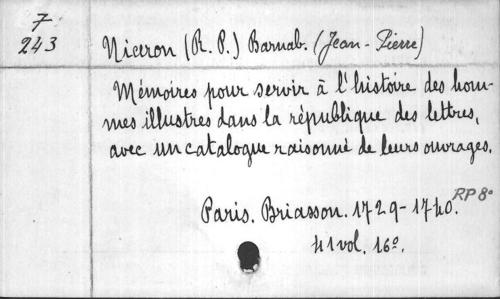 7
243
Niceron (R. P.) Barnab. (Jean-Pierre)
Mémoires pour servir à l'histoire des hom-
mes illustres dans la république des lettres,
avec un catalogue raisonné de leurs ouvrages.
Paris. Briasson. 1729-1740.
RP 8°
41 vol. 16º.